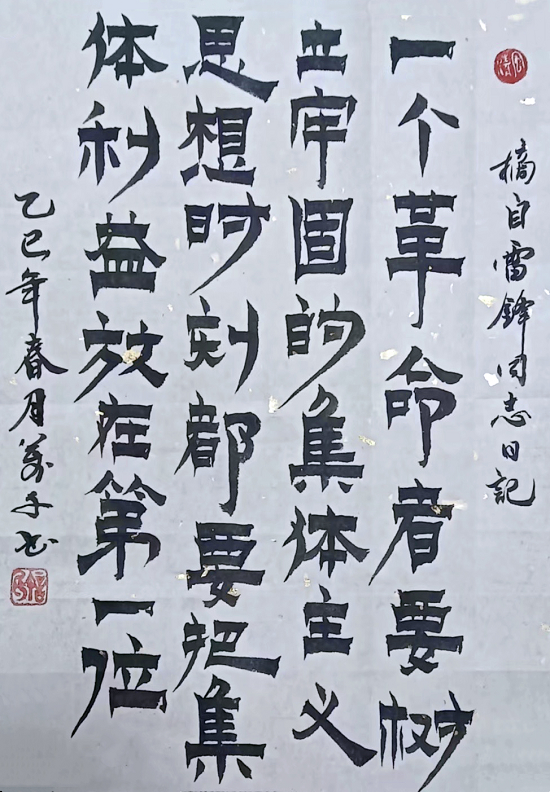 摘自雷锋同志日记
一个革命者要树
立牢固的集体主义
思想时刻都要把集
体利益放在第一位
乙巳年春月